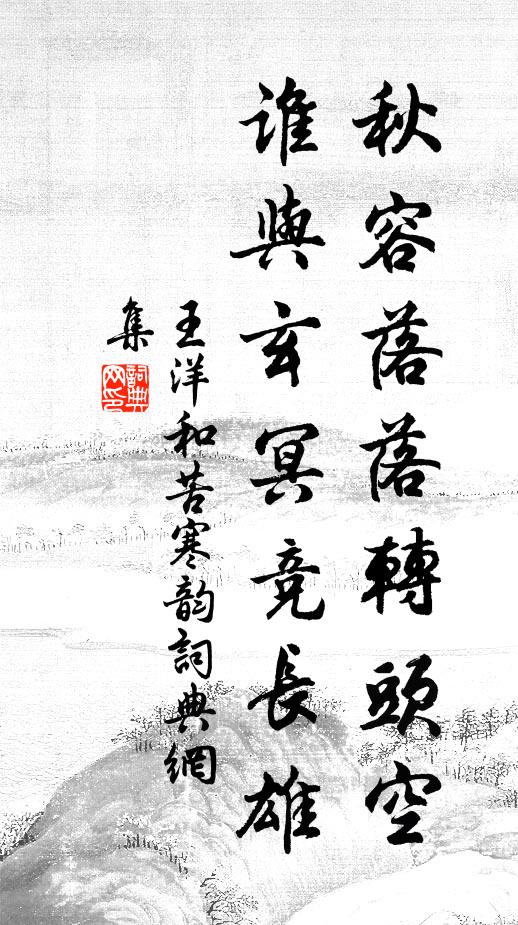 秋容落落轉頭空
誰與玄冥竞長雄
王洋和苦寒韵詞典網
集
詞典
网印